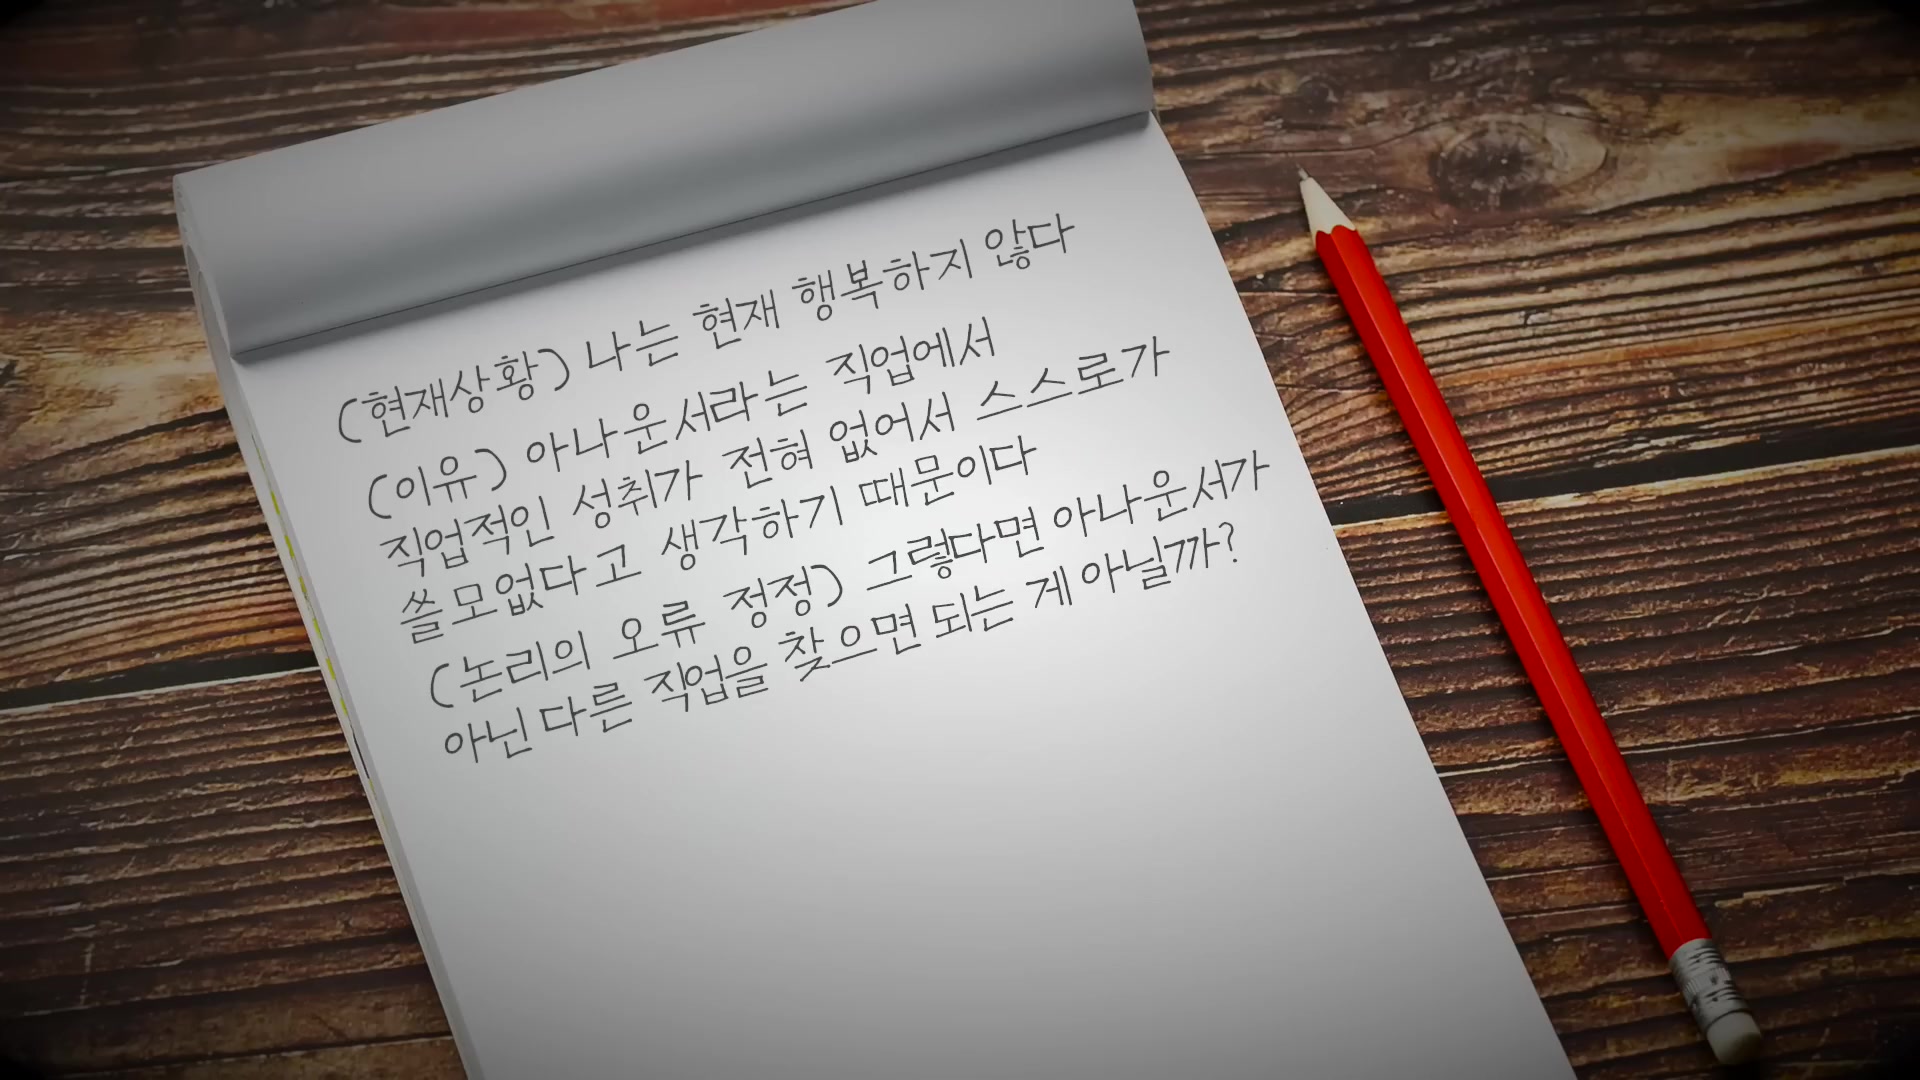 (현재상황) 나는 현재 행복하지 않다
(이유) 아나운서라는 직업에서
직업적인 성취가 전혀 없어서 스스로가
쓸모없다고 생각하기 때문이다
(논리의 오류 정정) 그렇다면 아나운서가
아닌 다른 직업을 찾으면 되는 게 아닐까?